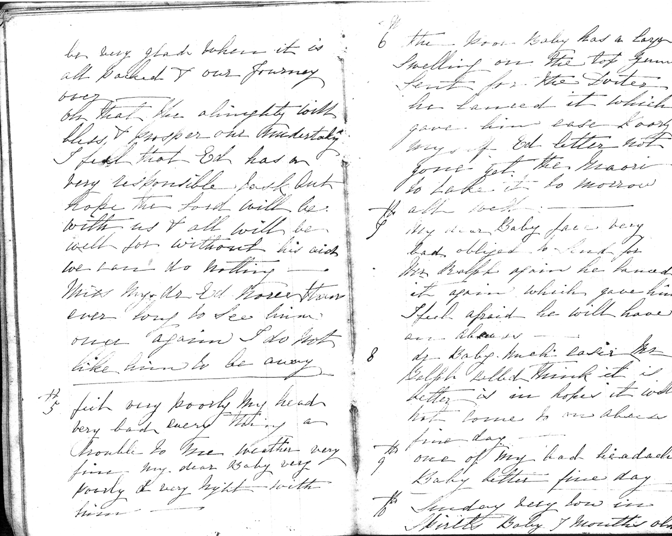 be very glad when it is
all packed & our Journey
over
oh that the almighty will
bless & prosper our undertaking
I feel that Ed has a
very responsible task but
hope the Lord will be
with us & all will be
well for without his aid
we can do nothing
Miss my dr Ed more than
ever long to see him
once again I do not
like him to be away
5th felt very poorly my head
very bad every thing a
trouble to me weather very
fine my dear Baby very
poorly & very night with
him
6th the poor Baby has a large
swelling on the top gum
sent for the
he lanced it which
gave him ease poorly
myself Ed letter not
gone yet the Maori
to take it to morrow
all well
7th My dear Baby face very
bad obliged to send for
Mr Ralph again he lanced
it again which gave him
I feel afraid he will have
an abcess
8 dr Baby much easier Mr
Ralph called think it is
better is in hopes it will
not come to an abcess
fine day
9th one of my bad headache
Baby better fine day
10th Sunday very low in
Spirits Baby 7 Months old